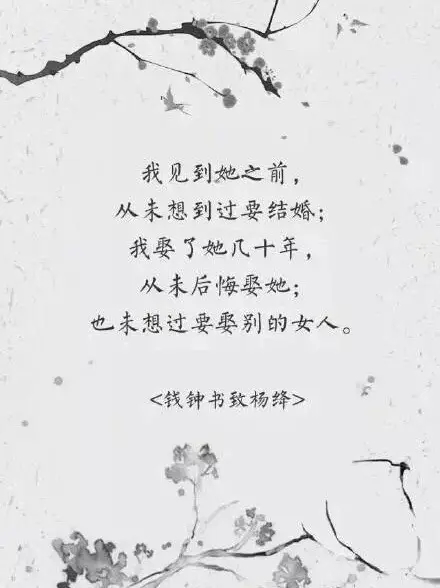 我见到她之前，
从未想到过要结婚；
我娶了她几十年，
从未后悔娶她；
也未想过要娶别的女人。
<钱钟书致杨绛>